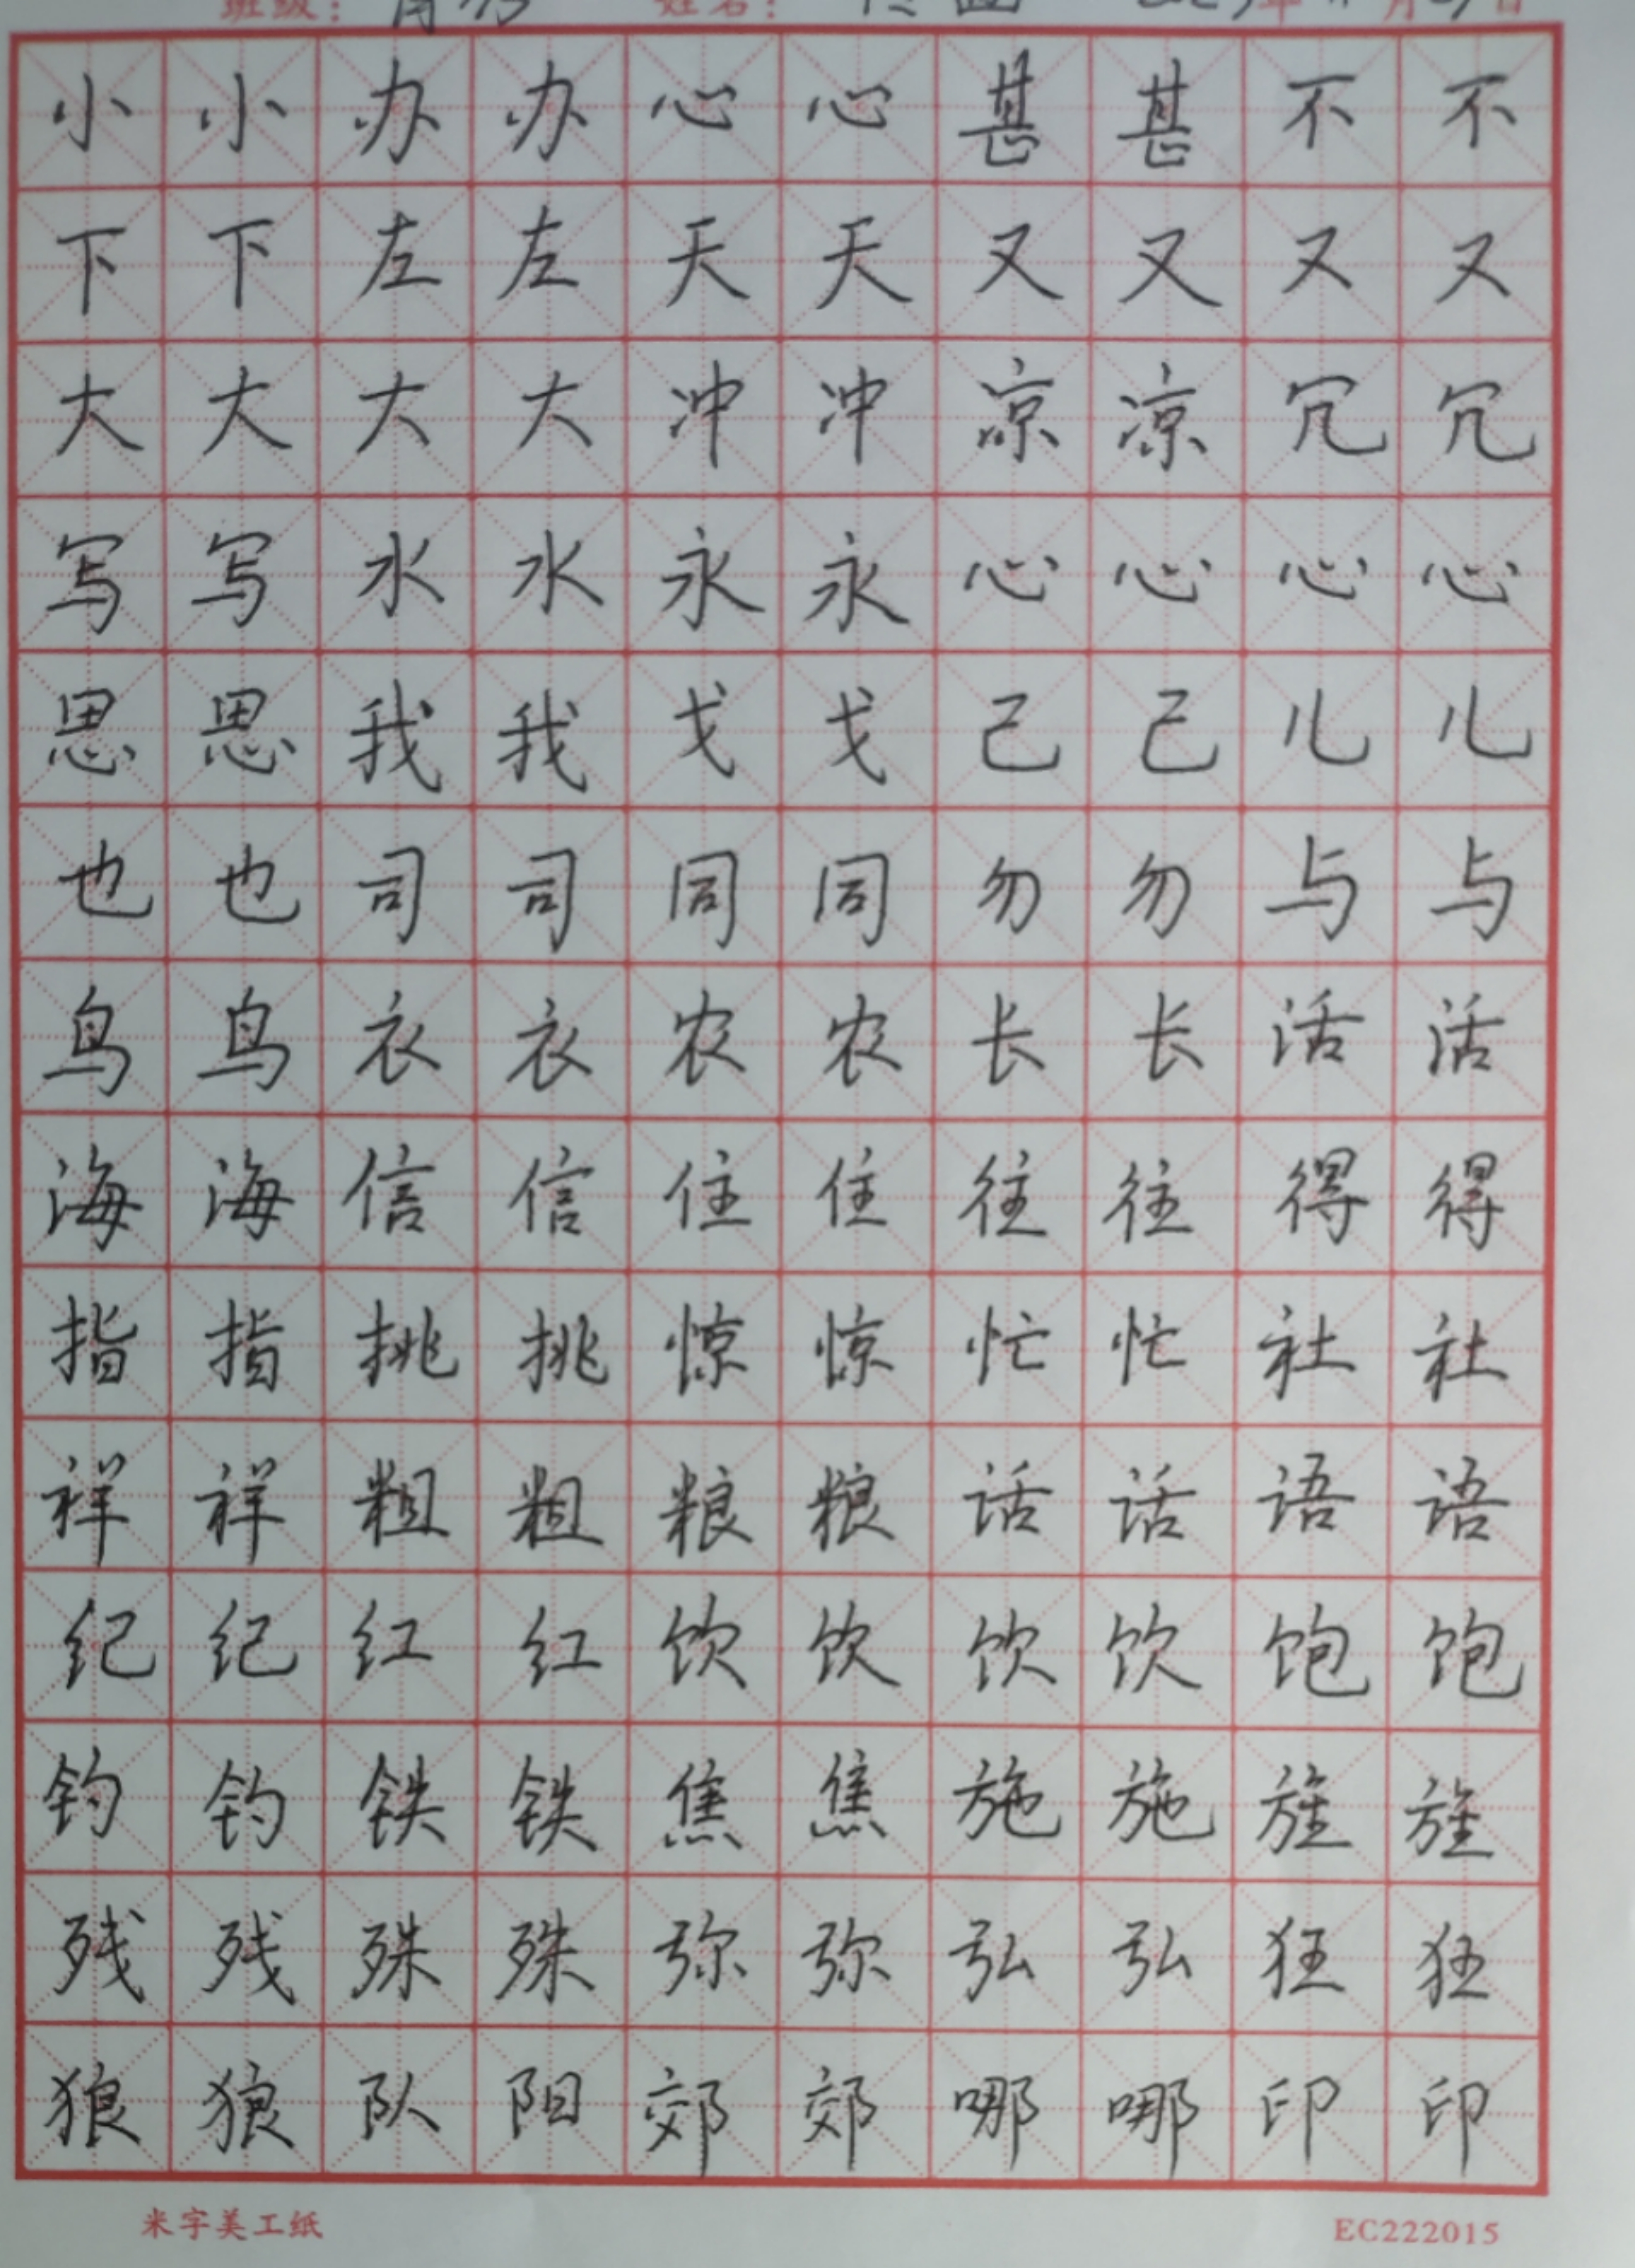 班级： 姓名： 年 月 日
小小办办心心甚甚不不
下下左左天天又又又又
大大大大冲冲凉凉冗冗
写写水水永永心心心心
思思我我戈戈己己儿儿
也也司司同同勿勿与与
鸟鸟衣衣农农长长活活
海海信信住住往往得得
指指挑挑惊惊忙忙社社
祥祥粗粗粮粮话话语语
纪纪红红饮饮饮饮饱饱
钓钓铁铁焦焦施施旌旌
残残殊殊弥弥弘弘狂狂
狼狼队阳郊郊哪哪印印
米字美工纸 EC222015